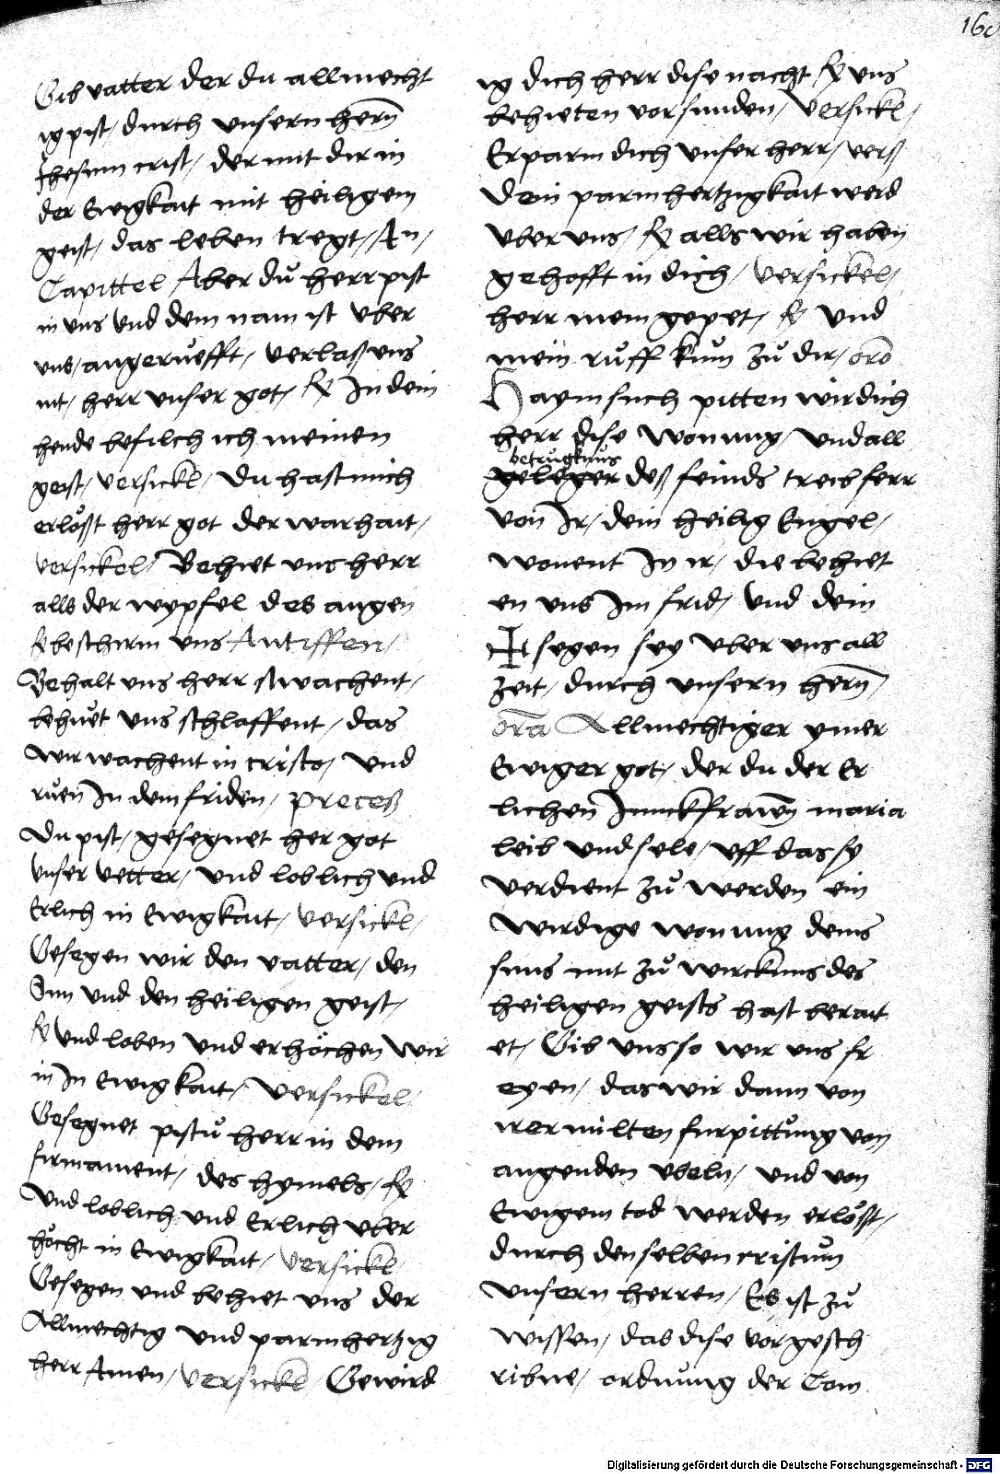 160
Gib vatter der du allmecht
ig pist / durch unsern hern̄
Jhesum crist / der mit dir in
der Ewigkait mit heiligem
geist / das leben tregt / An /
Capittel Aber du herr pist
in uns Und dein nam ist uber
uns / angerüefft / verlaß uns
nit / herr unser got / ℟ In dein
hende befilch ich meinen
geist / versickl / Du hast mich
erlößt herr got der warhait /
versickel / Behiet uns herr
alls der wypfel des augen
℟ beschirm uns Antiffen /
Behalt uns herr so wachent /
behüet uns schlaffent / das
wir wachent in cristo / und
rüen In dem friden / preces
Du pist / gesegnet her got
unser vetter / und loblich und
Erlich in Ewigkait / versickl /
Gesegen wir den vatter / den
Sun und den heiligen geist /
℟ und loben und erhöchen wir
in In ewigkait / versickel
Gesegnet pistu herr in dem
firmament / des hymels / ℟
Und loblich und Erlich uber
höcht in Ewigkait / versickl
Gesegen und behiet uns der
Allmechtig und parmhertzig
herr Amen / versickl / Gewird
ig dich herr dise nacht ℟ uns
behieten vor sunden / versickl /
Erparm dich unser herr / vers
Dein parmhertzigkait werd
uber uns / ℟ alls wir haben
gehofft in dich / versickel /
herr mein gepet / ℟ und
mein rüff kum zü dir / oro
Haymsuch pitten wir dich
herr dise wonung / und all
betrügknus
geleger deß feinds treib ferr
von Ir / dein heilig Engel /
wonent In ir / die behiet
en uns Im frid / und dein
✠ segen sey uber uns all
zeit / durch unsern hern̄ /
ora Allmechtiger ymer
Ewiger got / der du der Er
lichen Junckfrawen maria
leib und sele / uff das sy
verdient zü werden ein
wirdige wonung deins
suns mit zü wirckung des
heiligen geists hast berait
et / Gib uns so wir uns fr
eyen / das wir dann von
irer milten furpittung von
angenden ubeln / und von
Ewigem tod werden erlößt /
durch denselben cristum
unsern herren / Es ist zü
wissen / das dise vorgesch
ribne / ordnung der Com
Digitalisierung gefördert durch die Deutsche Forschungsgemeinschaft - DFG